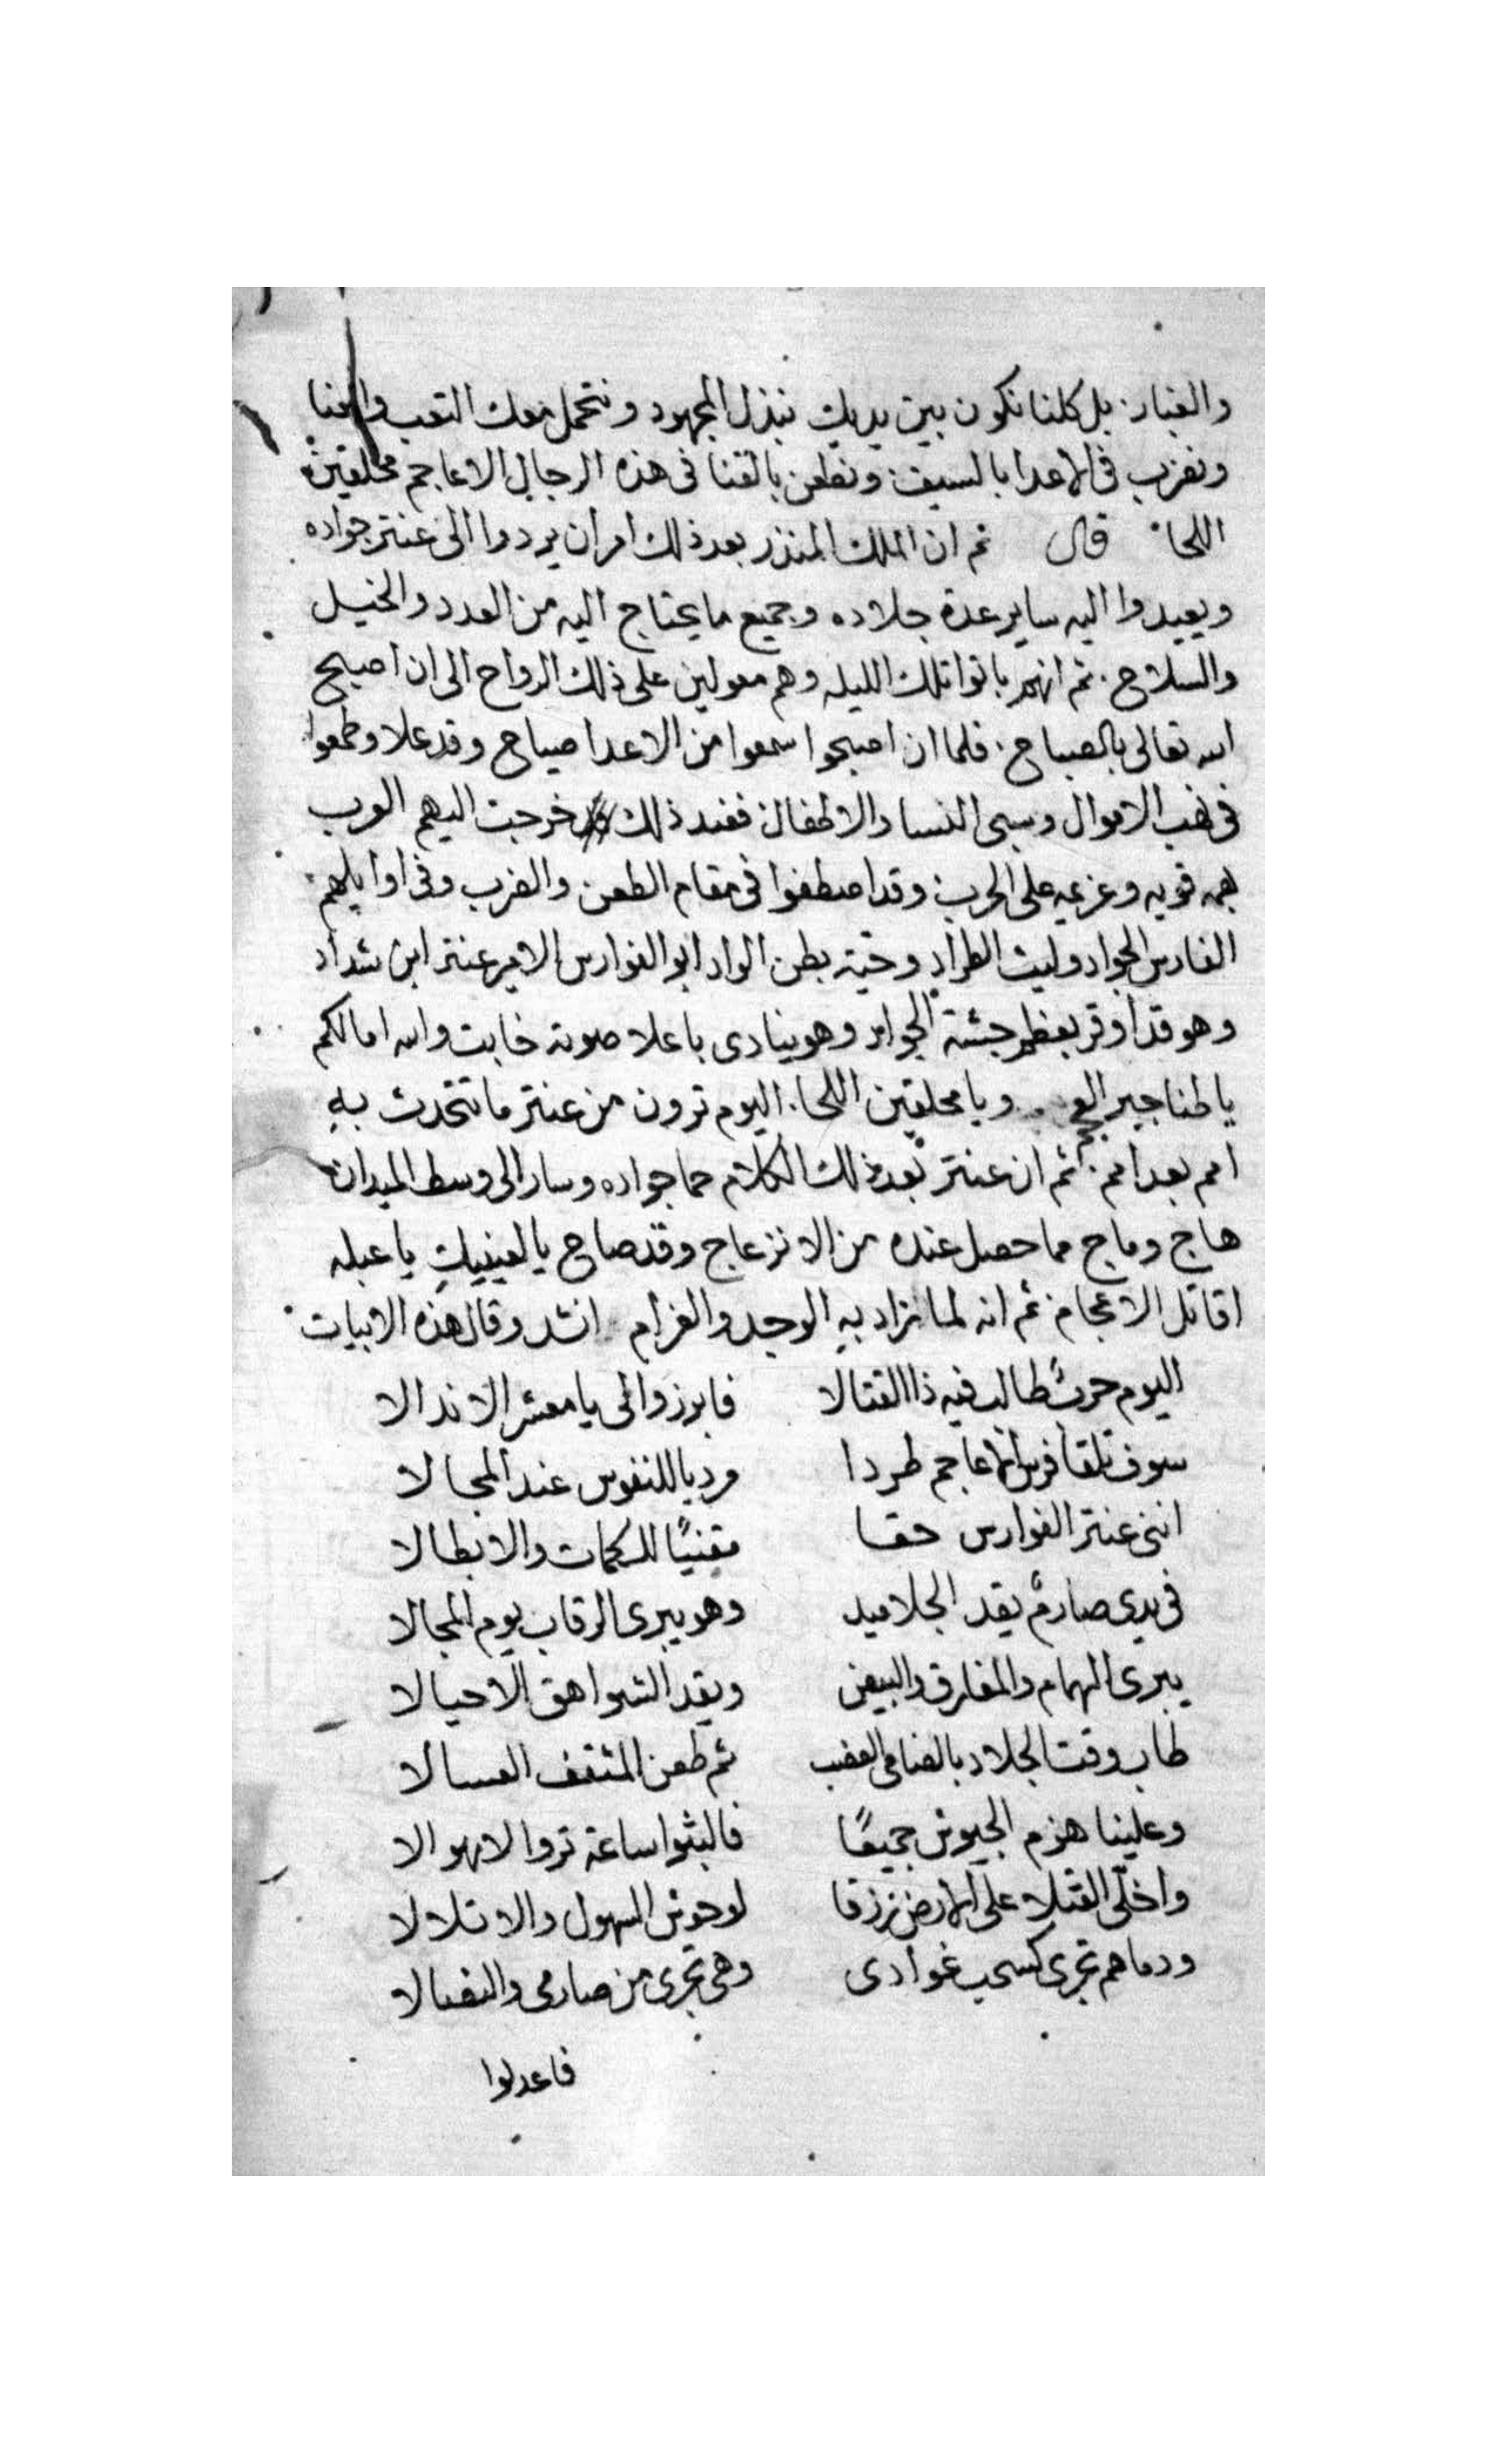 والغبار. بل كلنا نكون بين يديك نبذل المجهود ونتحمل معك التعب والعنا
ونضرب في الاعدا بالسيف ونطعن بالقنا في هذه الرجال الاعاجم محلقين
اللحا قال ثم ان الملك المنذر بعد ذلك امر ان يردوا الى عنتر جواده
ويعيدوا اليه ساير عدة جلاده وجميع ما يحتاج اليه من العدد والخيل
والسلاح. ثم انهم باتوا تلك الليله وهم معولين على ذلك الرواح الى ان اصبح
الله تعالى بالصباح. فلما ان اصبحوا سمعوا من الاعدا صياح وقد علا وطمعوا
في نهب الاموال وسبي النسا والاطفال فعند ذلك خرجت اليهم العرب
بهمه قويه وعزيمه على الحرب وقد اصطفوا في مقام الطعن والضرب وفي اوايلهم
الفارس الجواد وليث الطراد وحية بطن الواد ابو الفوارس الامير عنتر ابن شداد
وهو قد اوقر بعظم جثته الجواد وهو ينادي باعلا صوته خابت والله امالكم
يا طناجير العجم ويا محلقين اللحا. اليوم ترون من عنتر ما تتحدث به
امم بعد امم. ثم ان عنتر بعد ذلك الكلام حما جواده وسار الى وسط الميدان
هاج وماج مما حصل عنده من الانزعاج وقد صاح يا لعينيك يا عبله
اقاتل الاعجام ثم انه لما زاد به الوجد والغرام انشد وقال هذه الابيات
اليوم حرب طالب فيه ذا القتالا فابرزوا لي يا معشر الاندالا
سوف تلقا فرس الاعاجم طردا مرديا للنفوس عند المجالا
انني عنتر الفوارس حقا مفنيًا للكمات والابطالا
في يدي صارم يقد الجلاميد وهو يبري الرقاب يوم المجالا
يبري الهام والمفارق والبيض ويقد الشواهق الاجبالا
طاب وقت الجلاد العضب ثم طعن المثقف العسالا
وعلينا هزم الجيوش جميعًا فالبثوا ساعة تروا الاهوالا
واخلّي القتلا على الارض رزقا لوحوش السهول والاتلالا
ودماهم تجري كسحب غوادي وهي تجري من صارمي والنصالا
فاعدلوا